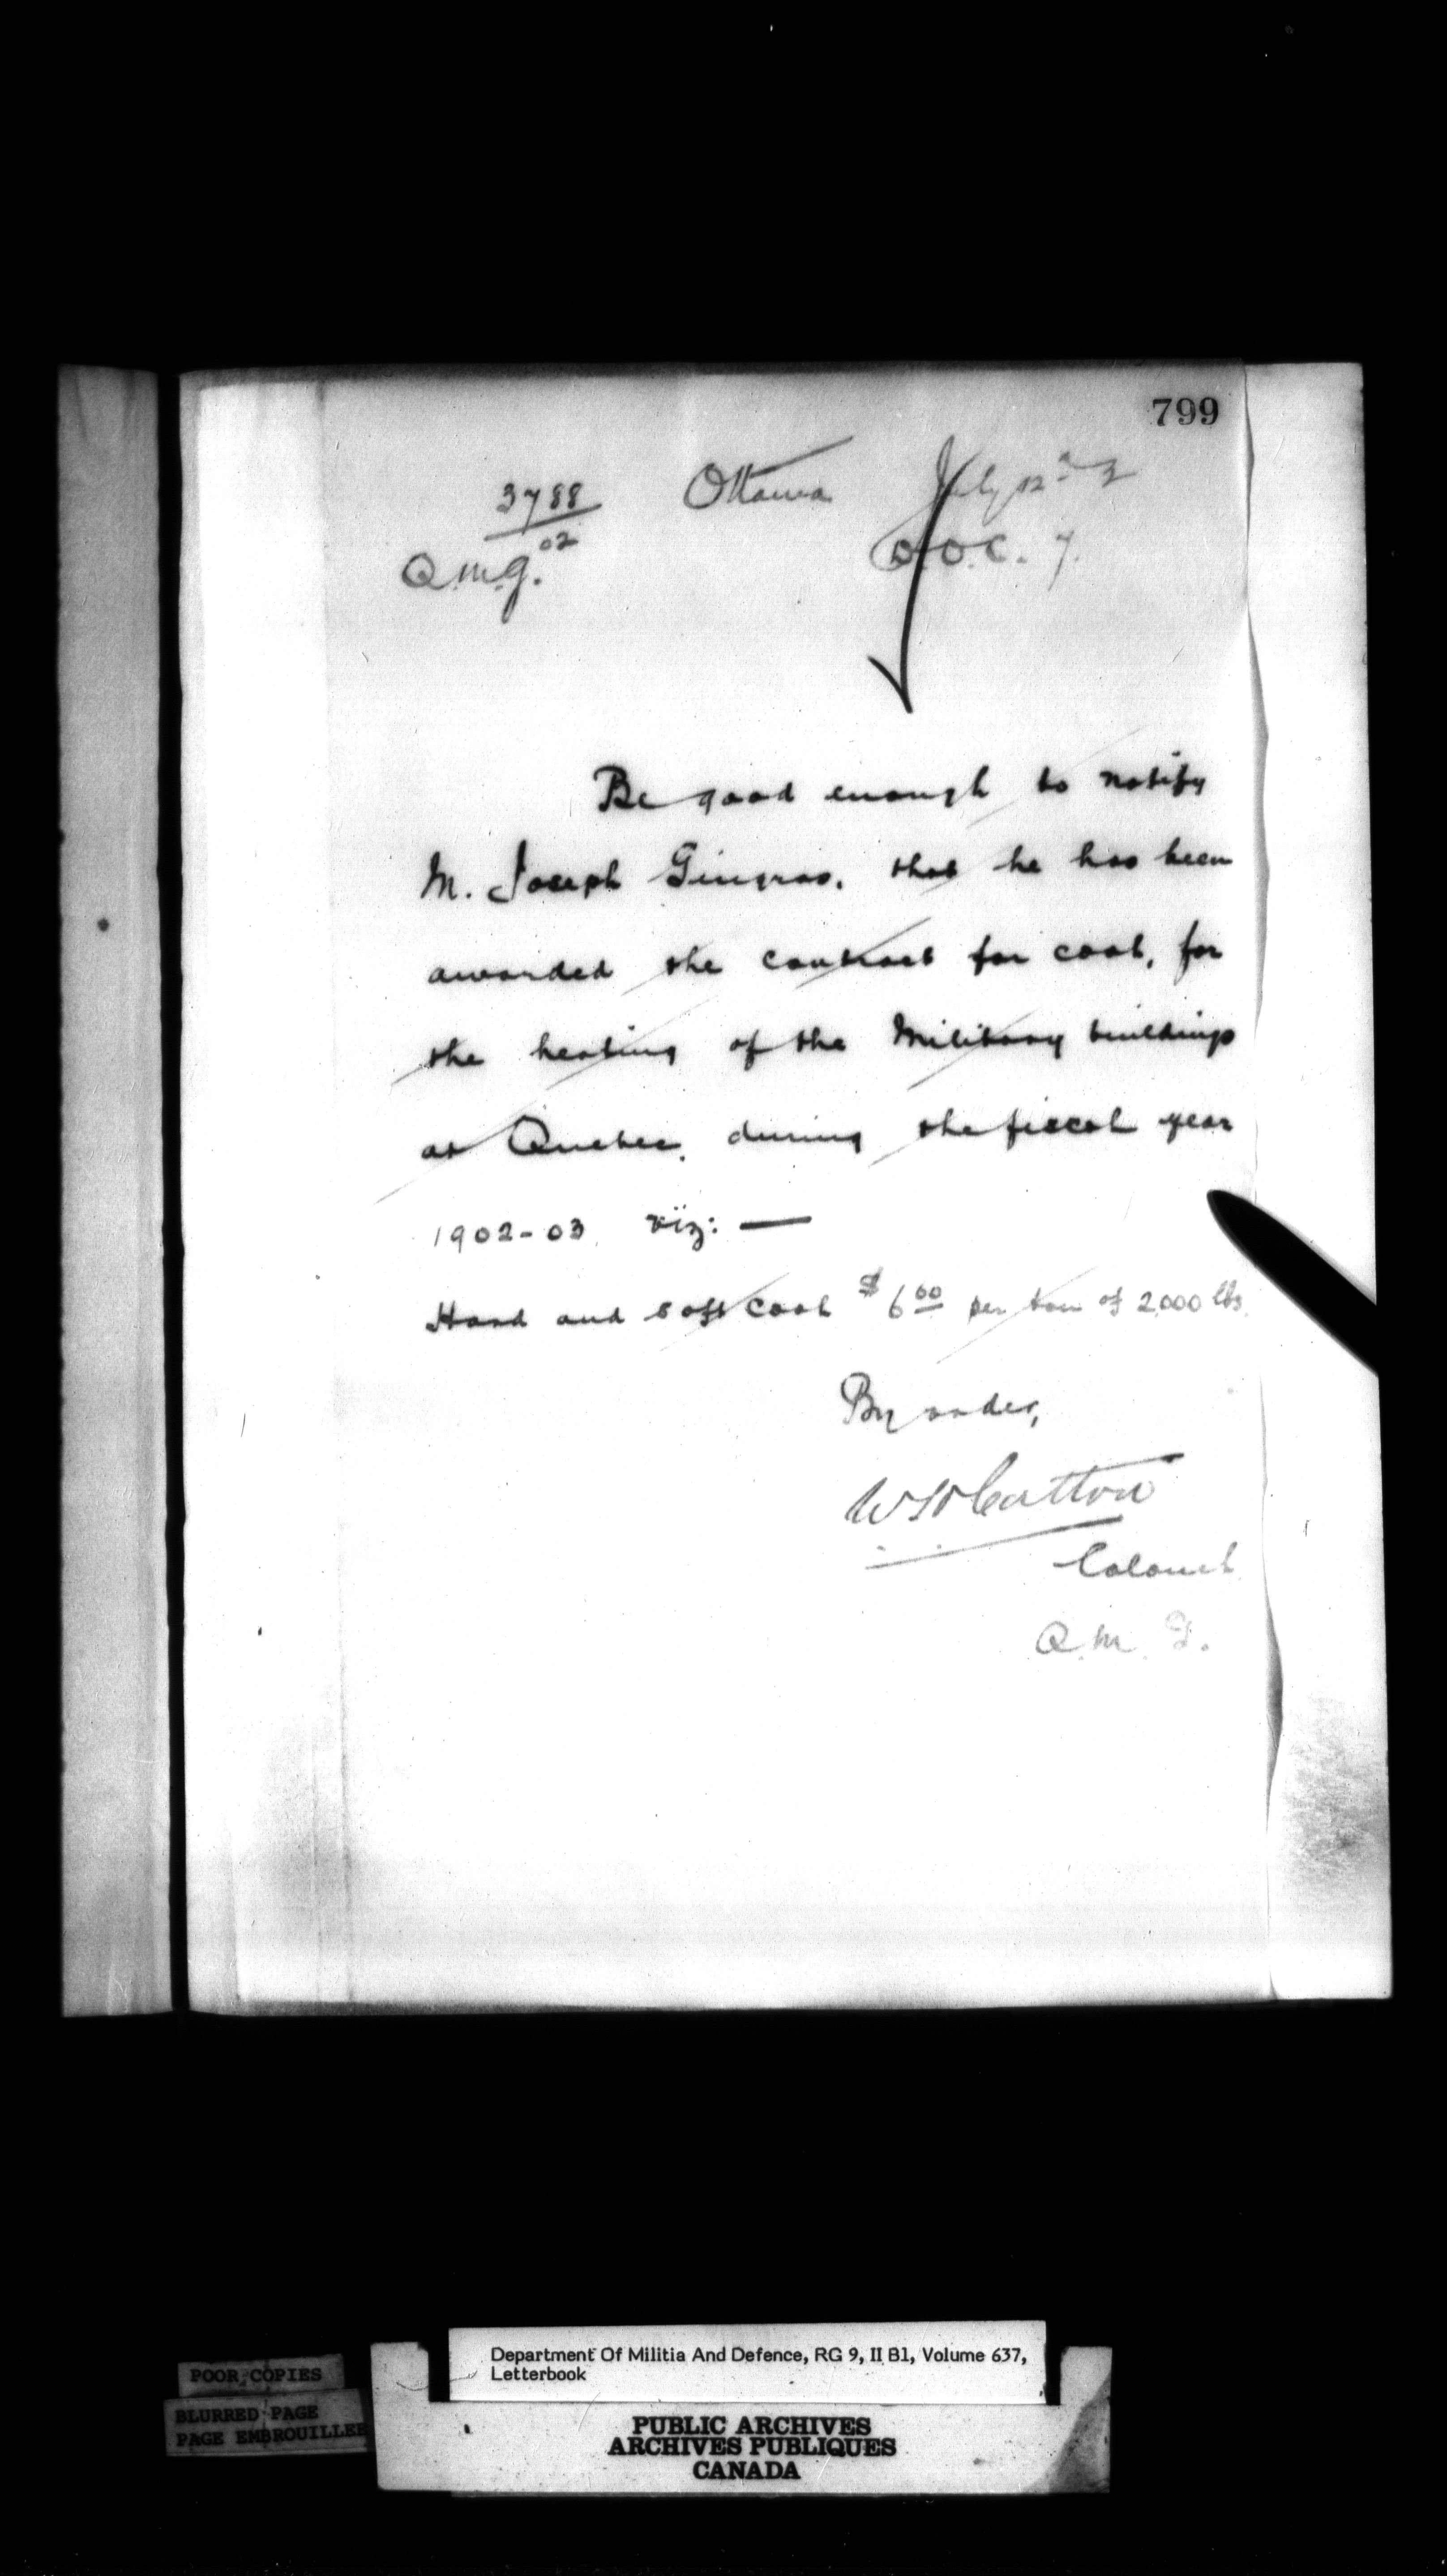 799
3788 Ottawa July 12
02
Q.M.G. D.O.C. 7.
Be good enough to notify
M. Joseph Gingras, that he has been
awarded the contract for coal, for
the heating of the Military buildings
at Quebec, during the fiscal year
1902-03, viz: —
Hard and soft coal $6.00 per ton of 2,000 lbs.
By order,
W H Cotton
Colonel
Q.M.G.
Department Of Militia And Defence, RG 9, II B1, Volume 637,
Letterbook
POOR COPIES
BLURRED PAGE
PAGE EMBROUILLEE
PUBLIC ARCHIVES
ARCHIVES PUBLIQUES
CANADA